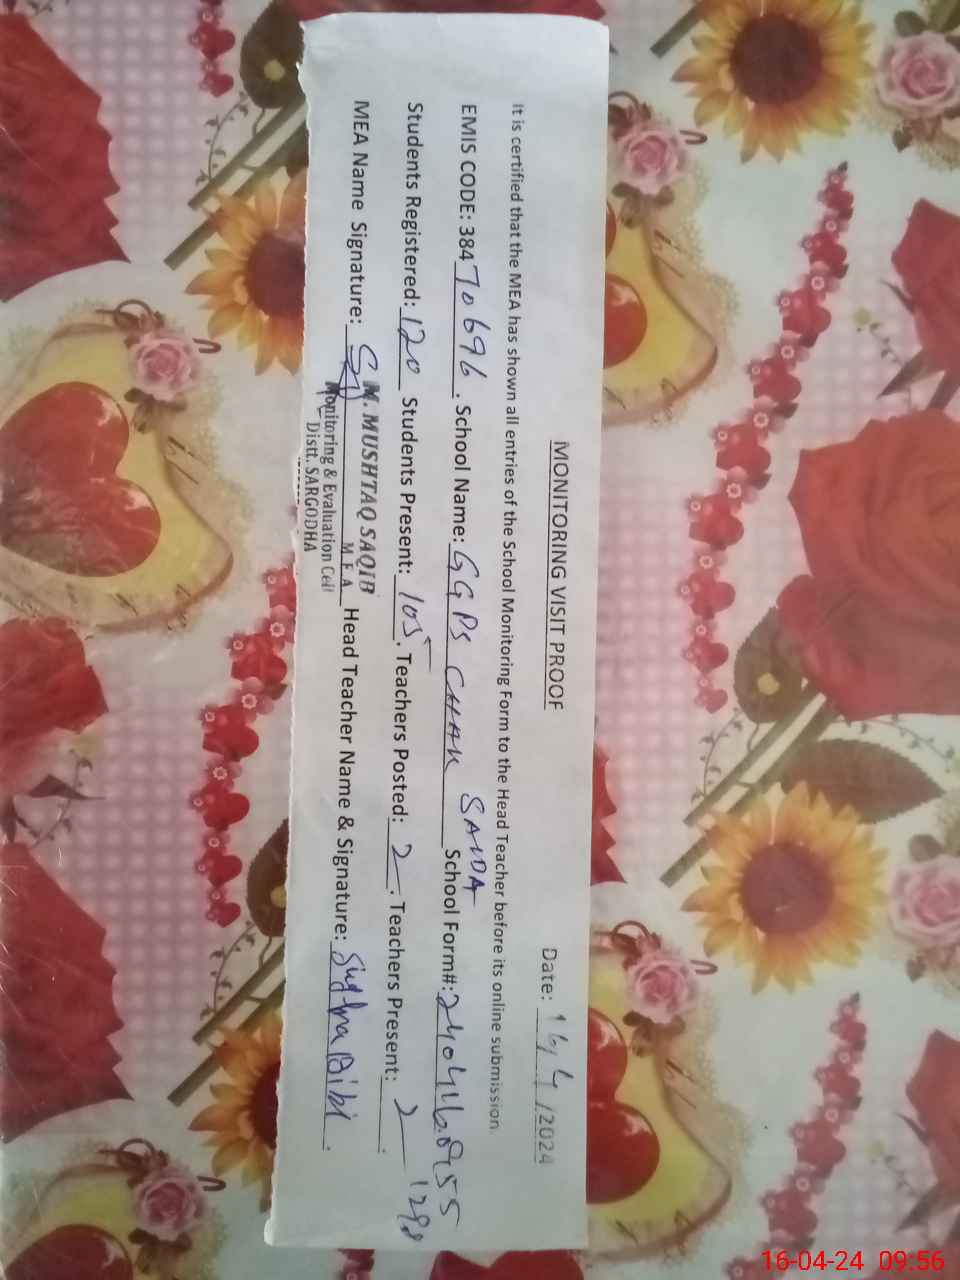 MONITORING VISIT PROOF
Date: 16/4/2024
It is certified that the MEA has shown all entries of the School Monitoring Form to the Head Teacher before its online submission.
EMIS CODE: 38470696. School Name: GGPS CHAK SAIDA School Form#: 240416.0955
1298
Students Registered: 120 Students Present: 105. Teachers Posted: 2. Teachers Present: 2.
MEA Name Signature: Head Teacher Name & Signature: Sughra Bibi.
M. MUSHTAQ SAQIB
M E A
Monitoring & Evaluation Cell
Distt. SARGODHA
16-04-24 09:56